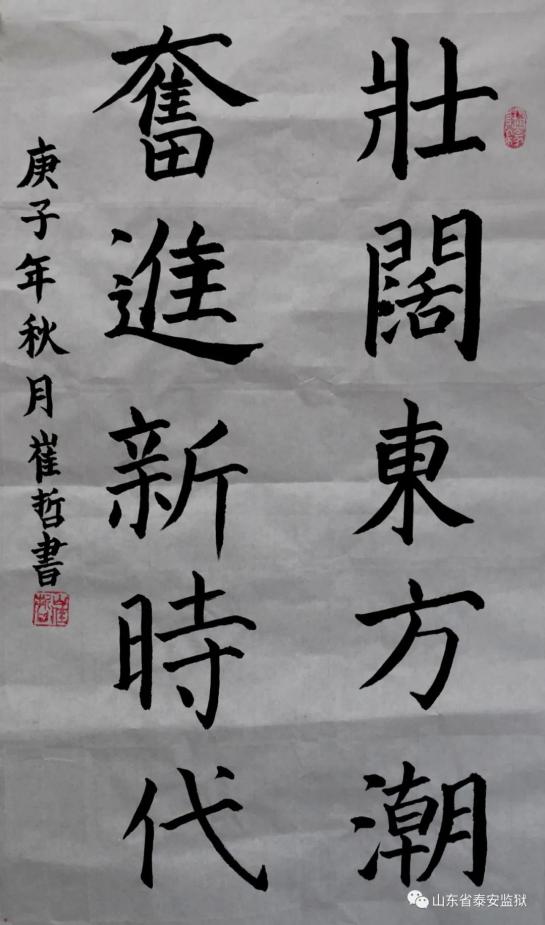 壯闊東方潮
奮進新時代
庚子年秋月崔哲書
山东省泰安监狱